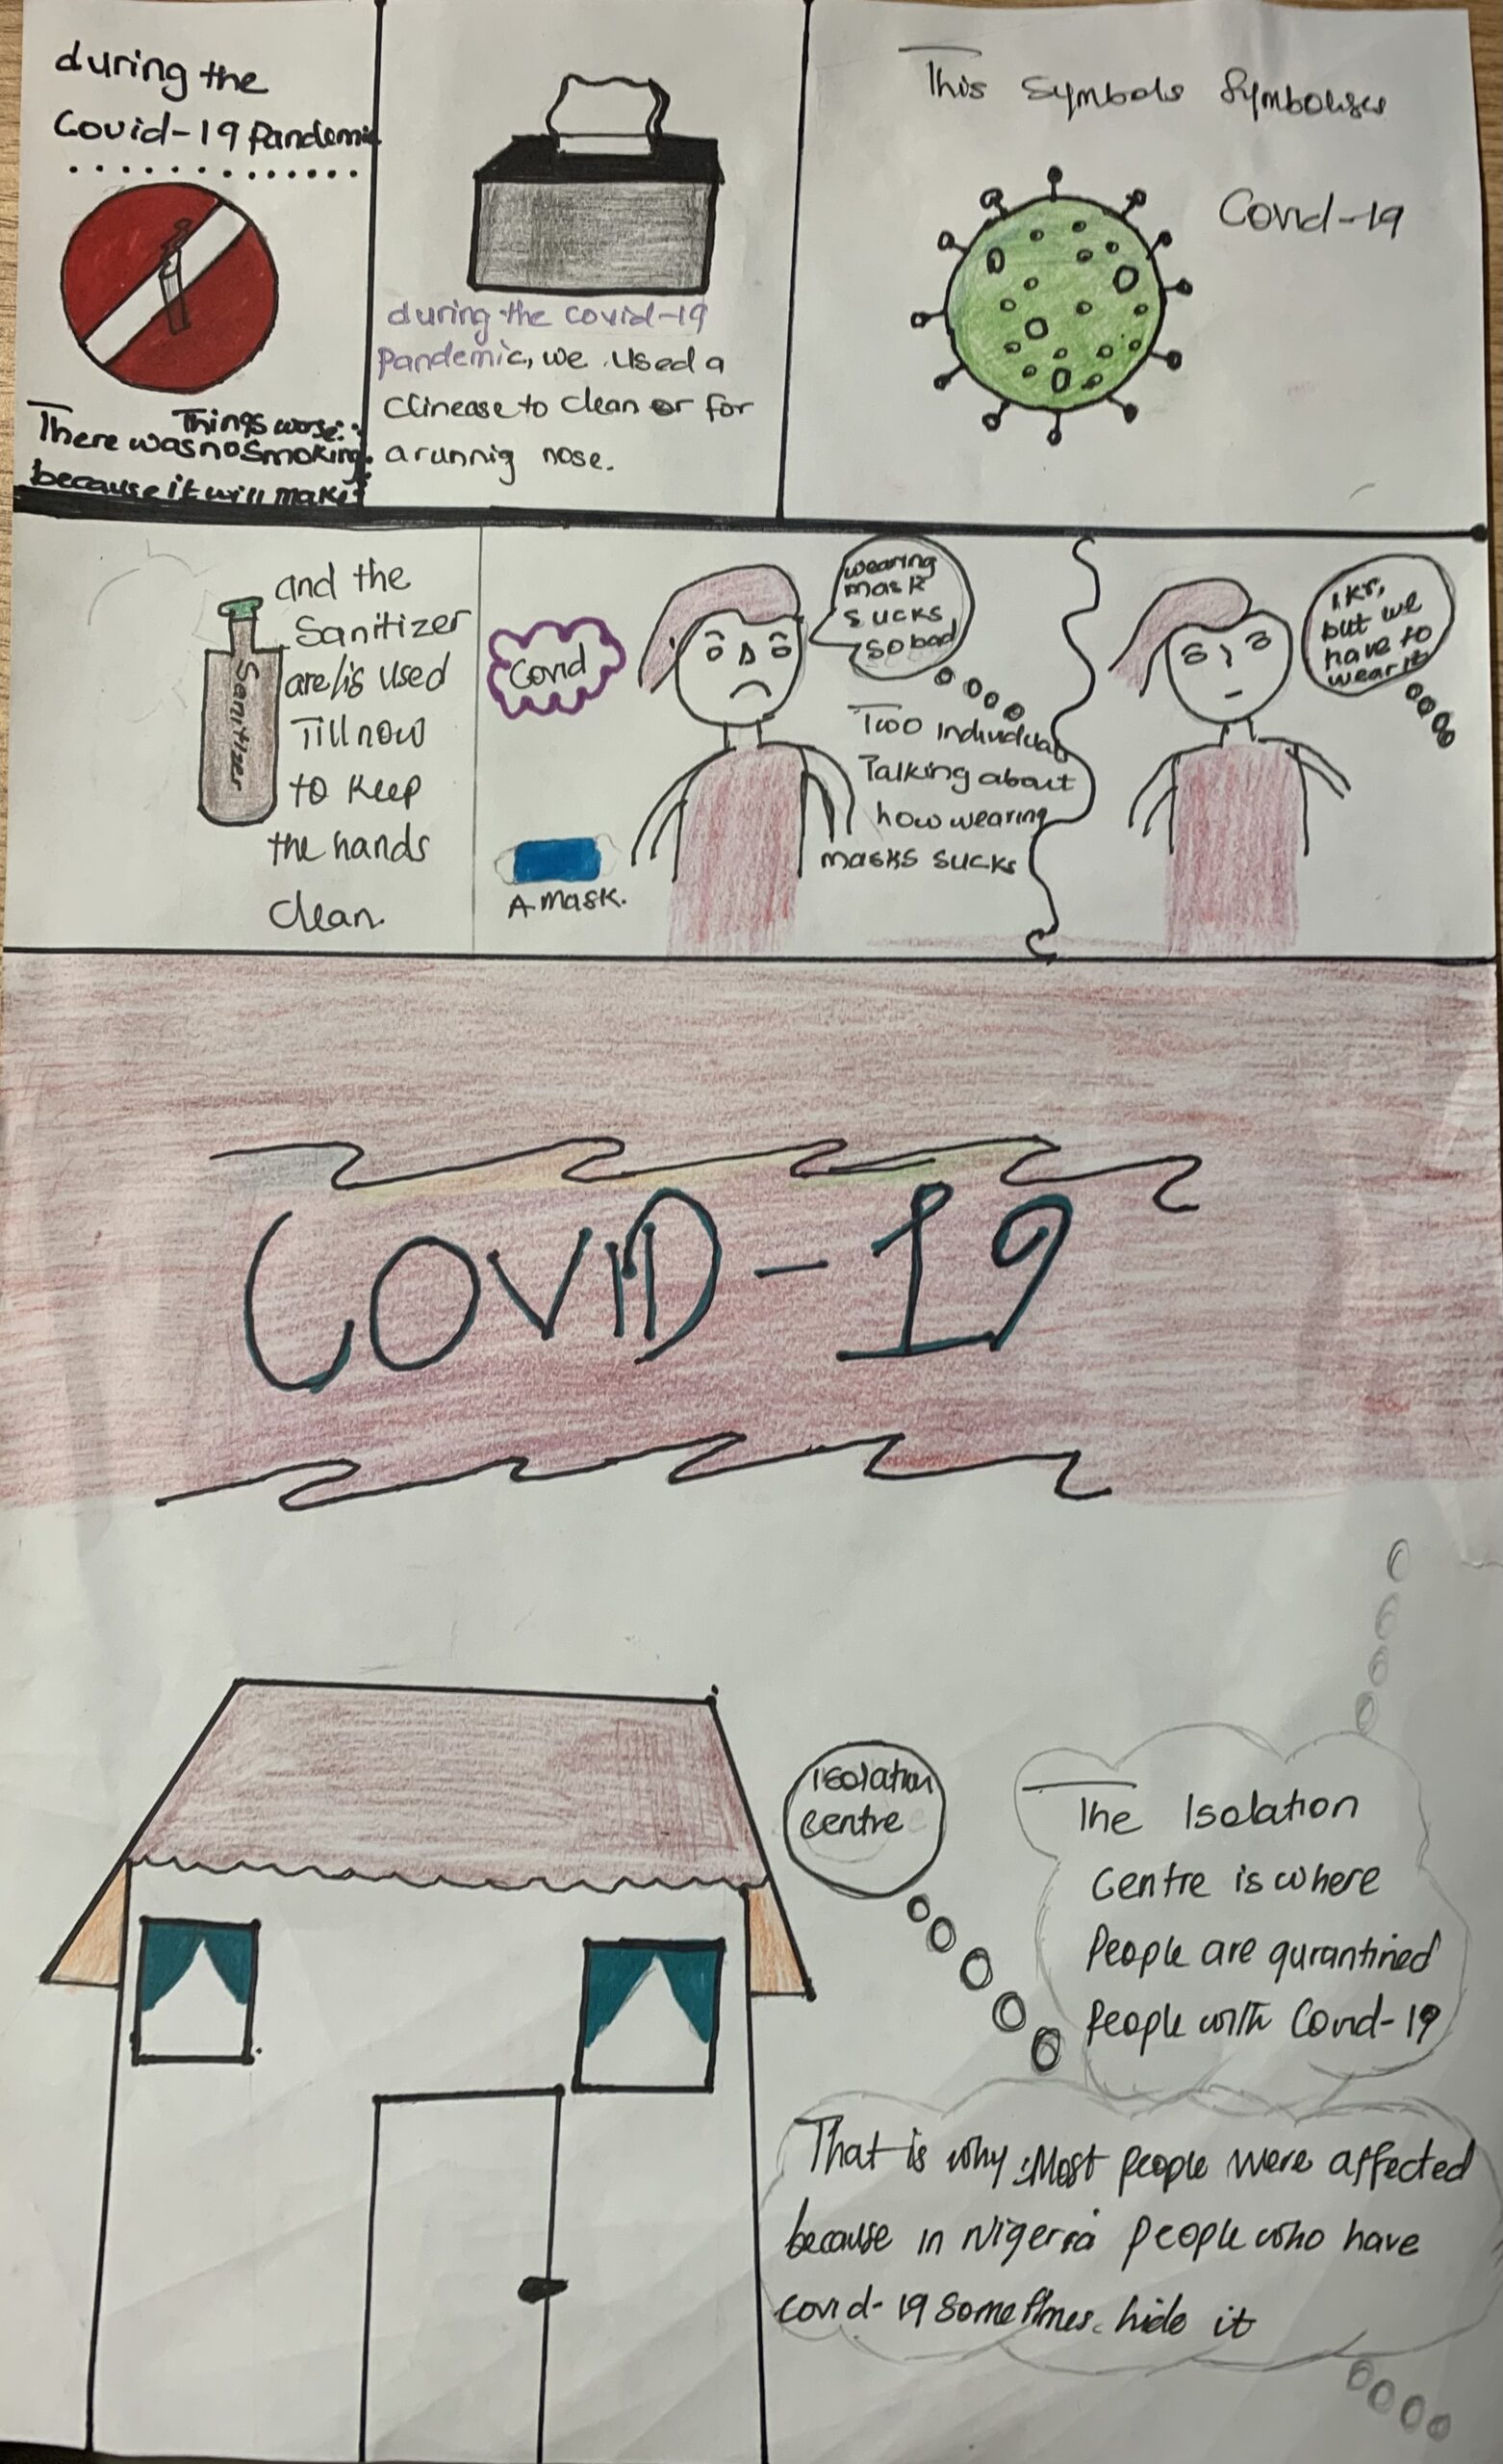 during the
Covid-19 Pandemic
There was no smoking
because it will make
Things worse.
during the covid-19
Pandemic, we used a
Clinease to clean or for
a runnig nose.
This Symbols Symbolises
Covid-19
and the
Sanitizer
are/is used
Till now
to keep
the hands
clean.
Sanitizer
Covid
A mask.
wearing
mask
sucks
so bad
Two individual
Talking about
how wearing
masks sucks
ikr,
but we
have to
wear it
COVID-19
isolation
centre
The Isolation
Centre is where
People are qurantined
People with Covid-19
That is why Most people were affected
because in Nigeria people who have
covid-19 sometimes hide it